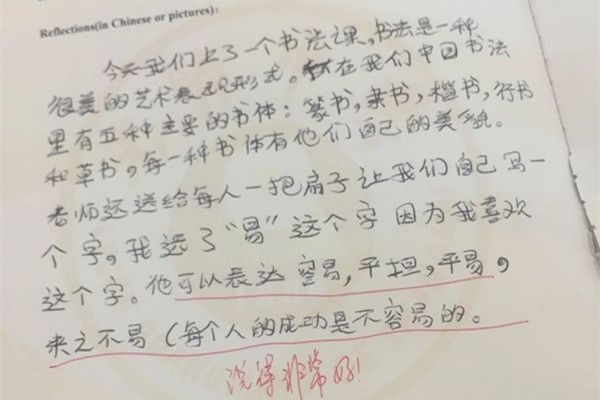 Reflections(in Chinese or pictures):
今天我们上了一个书法课,书法是一种
很美的艺术表现形式。在我们中国书法
里有五种主要的书体:篆书,隶书,楷书,行书
和草书,每一种书体有他们自己的美貌。
老师还送给每人一把扇子让我们自己写一
个字,我选了“易”这个字因为我喜欢
这个字。他可以表达容易,平坦,平易,
来之不易(每个人的成功是不容易的。
说得非常好!